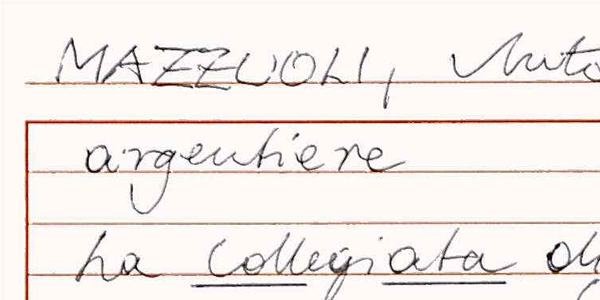 MAZZUOLI,
argentiere
La Collegiata di